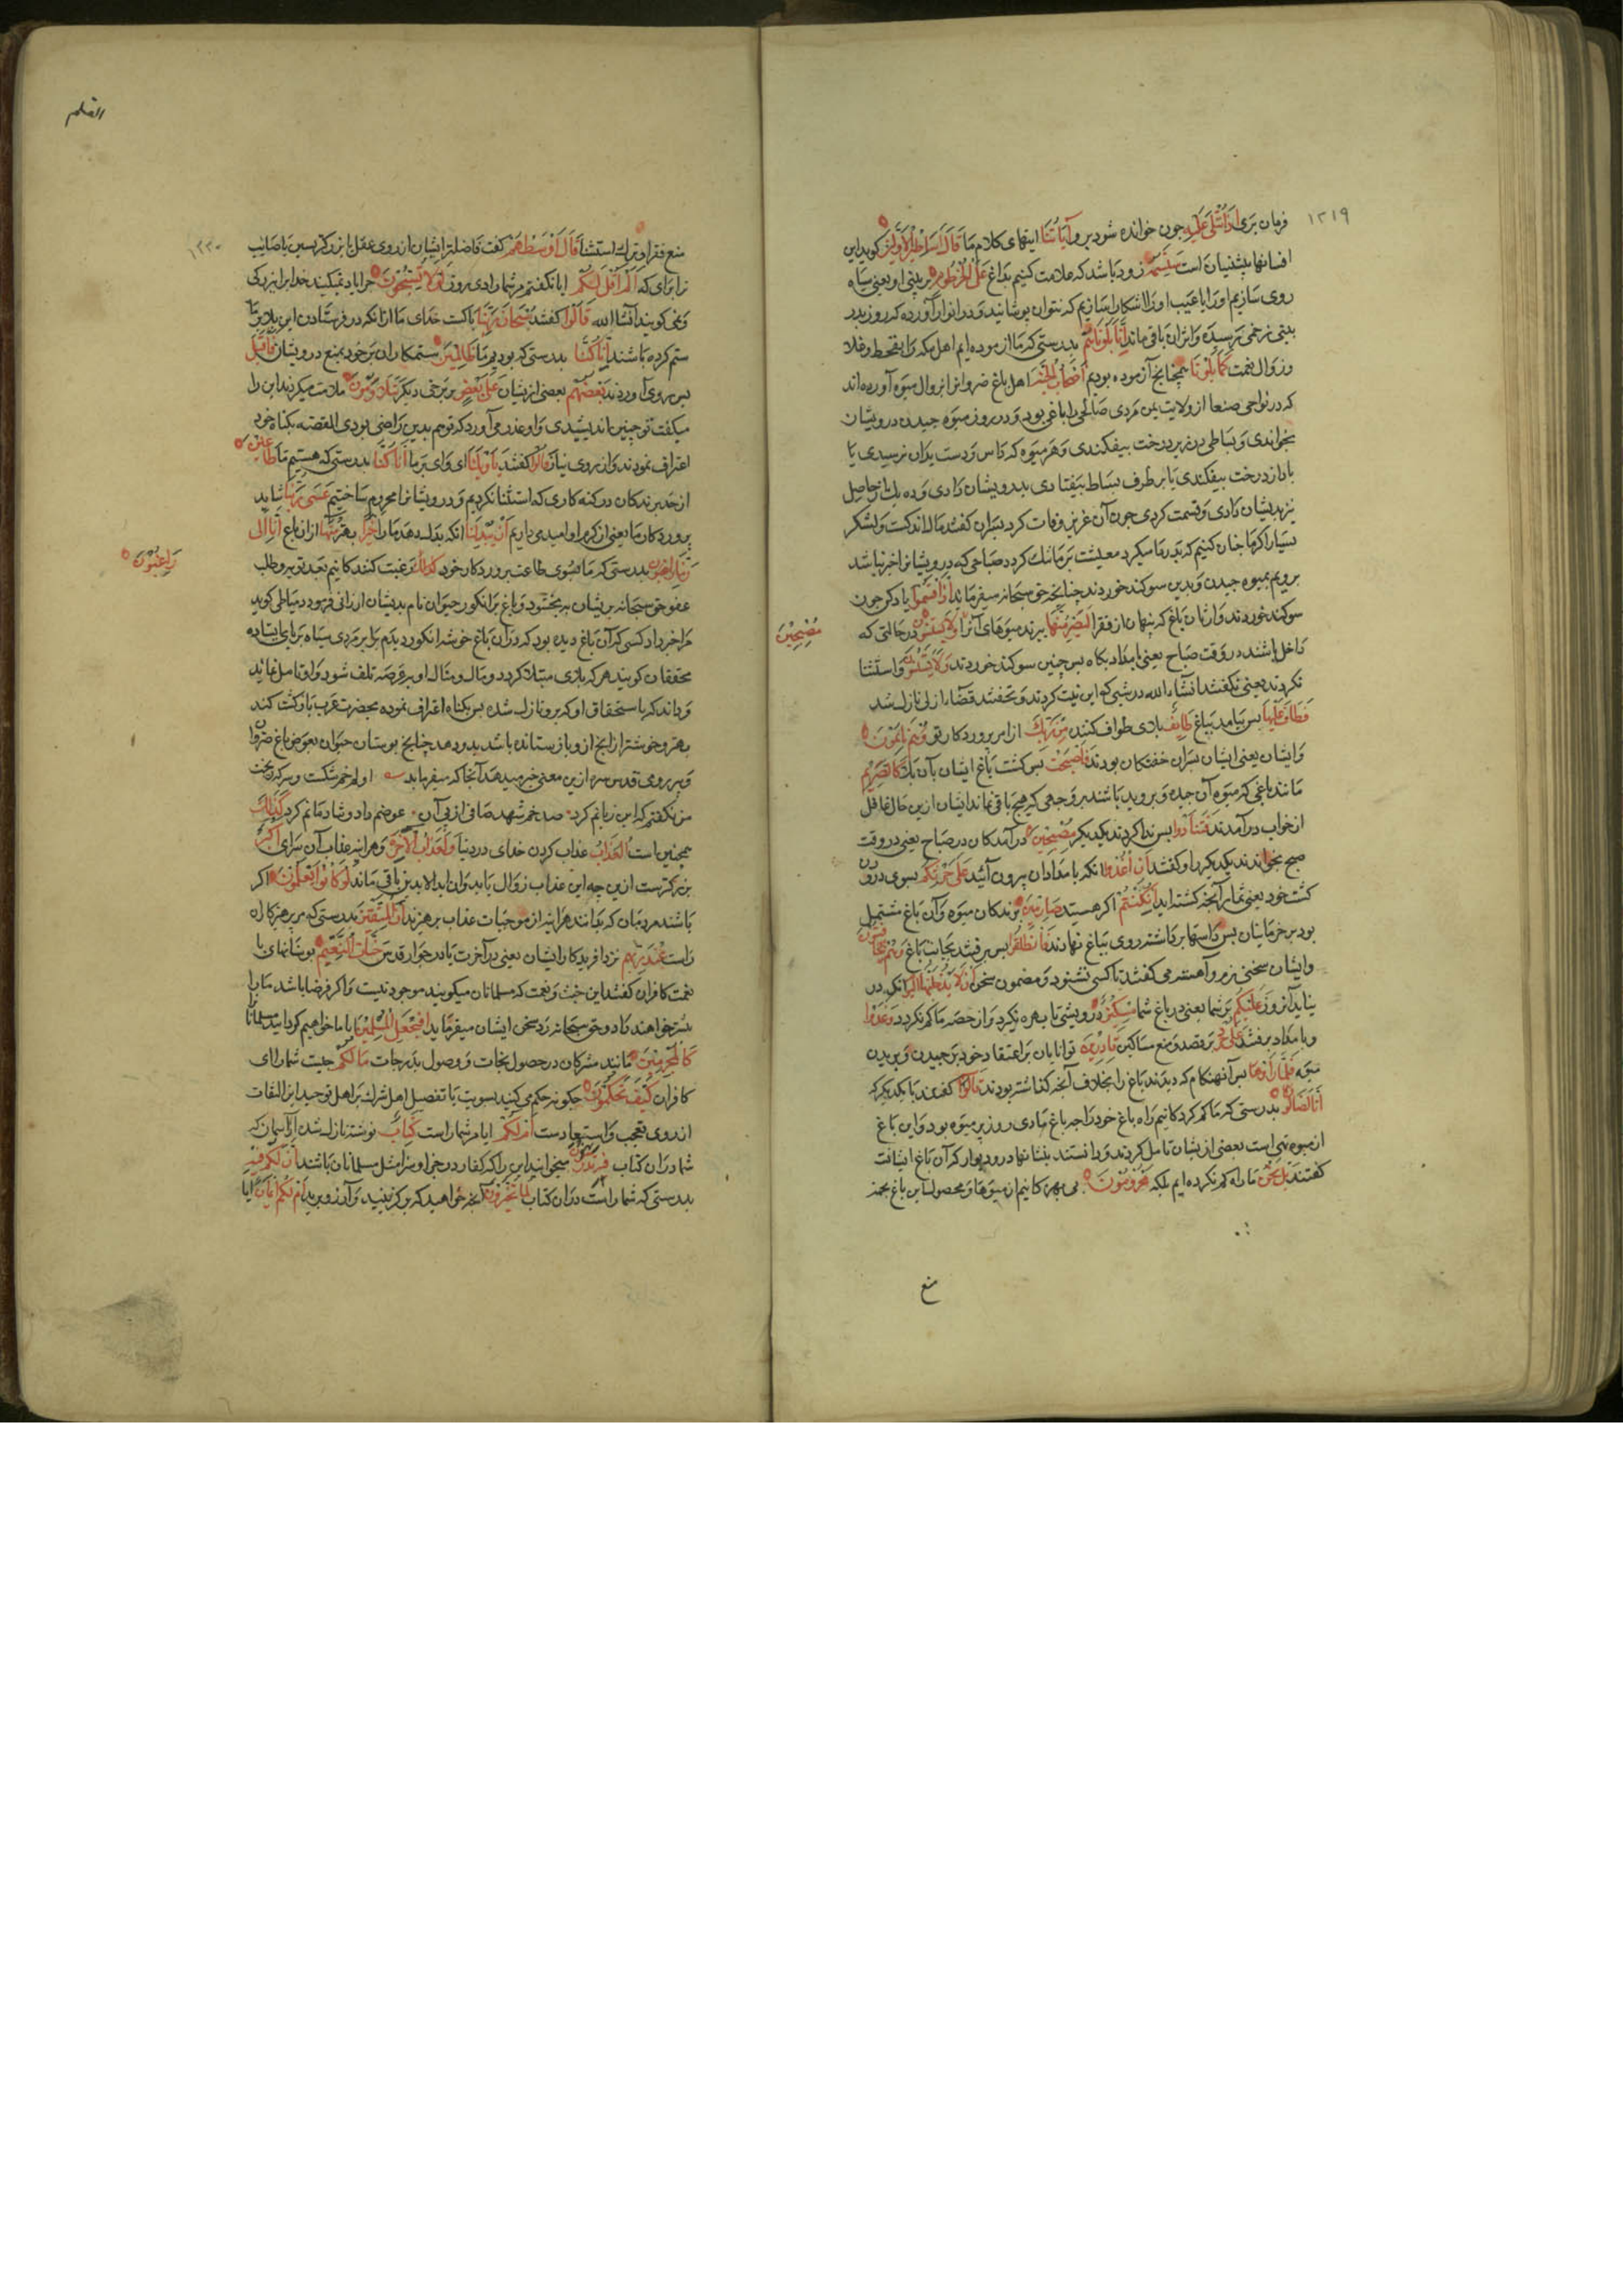 ١٢١٩
فرمان بری اذا تتلی علیه جون خوانده شود بر و آیاتنا ایتهای کلام ما قال اساطیر الاولین کوید این
افسانها پیشینیان است سنسمه زود باشد که علامت کنیم بداغ علی الخرطوم بر بینی او یعنی سیاه
روی سازیم او را یا عیب او را اشکارا سازیم که نتوان پوشانید و در انوار آورده که روز بدر
بینی زخمی رسیده و اثر آن باقی ماند انا بلوناهم بدرستی که ما ازموده ایم اهل مکه را بقحط و غلا
و زوال نعمت کما بلونا همجنانج آزموده بودیم اصحاب الجنة اهل باغ ضروان
که در نواحی صنعا از ولایت یمن مردی صالح را باغی بود و در روز میوه جیدن درویشان
بخواندی و بساطی در زیر درخت بیفکندی و هر میوه که داس و دست بدان نرسیدی یا
باد از درخت بیفکندی یا بر طرف بساط بیفتادی بدرویشان دادی و ده یک از حاصل
نیز بدیشان دادی و قسمت کردی جون آن عزیز وفات کرد پسران گفتند مال اندکست و لشکر
بسیار اکر ما جنان کنیم که پدر ما میکرد معیشت بر ما تنک کردد صباحی که درویشانرا خبر نباشد
برویم بمیوه جیدن و بدین سوکند خوردند جنانجه حق سبحانه میفرماید اذ اقسموا یاد کن جون
سوکند خوردند وارثان باغ که پنهان از فقرا لیصرمنها ببرند میوهای آنرا در حالتی که
مصبحین
داخل باشند در وقت صباح یعنی بامداد پکاه پس جنین سوکند خوردند ولا یستثنون و استثنا
نکردند یعنی نکفتند انشاء الله در شبی که این نیت کردند و بخفتند قضاء ازلی نازل شد
فطاف علیها پس بیامد بباغ طائف بلای طواف کننده من ربک از امر پروردکار تو وهم نائمون
و ایشان یعنی ایشان پسران خفتکان بودند فاصبحت پس کشت باغ ایشان بآن بلا کالصریم
مانند باغی که میوه آن جیده و بریده باشند بر وجهی که هیج باقی نماند ایشان ازین حال غافل
از خواب در آمدند فتنادوا پس ندا کردند یکدیکر مصبحین در آمدکان در صباح یعنی در وقت
صبح بخواندند یکدیکر را و کفتند ان اغدوا انکه بامدادان بیرون آئید علی حرثکم بسوی درودن
کشت خود یعنی ثمار آنجه کشته اید ان کنتم اکر هستید صارمین برندکان میوه و آن باغ مشتمل
بود بر خرماینان پس داسها برداشته روی بباغ نهادند فانطلقوا پس برفتند بجانب باغ وهم یتخافتون
و ایشان سخنی نرم و آهسته می کفتند تا کسی نشنود و مضمون سخن ان لا یدخلنها الیوم انکه در
نیاید آنروز علیکم بر شما یعنی در باغ شما مسکین درویشی تا بهره نکیرد و از حصه ما کم نکردد وغدوا
و بامداد برفتند علی حرد بر قصد و منع مساکین قادرین توانایان بر اعتقاد خود بر جیدن و بریدن
میوه فلما راوها پس آنهنکام که دیدند باغ را بخلاف آنجه کذاشته بودند قالوا کفتند با یکدیکر که
انا لضالون بدرستی که ما کم کردکانیم راه باغ خود را جه باغ ما دی روز پر میوه بود و این باغ
از میوه تهی است بعضی از یشان تامل کردند و دانستند بنشانها در و دیوار که آن باغ ایشانست
کفتند بل نحن ما راه کم نکرده ایم بلکه محرومون بی بهره کانیم از میوها و محصول این باغ بجهة
منع
القلم
١٢٢٠
منع فقرا و ترک استثنا قال اوسطهم کفت فاضلترایشان از روی عقل یا بزرکتر بسن یا صائب
تر برای که الم اقل لکم ایا نکفتم مر شما را دی روز لولا تسبحون جرا یاد نمیکنید خدایرا ببزرکی
و نمی کویند انشا الله قالوا کفتند سبحان ربنا پاکست خدای ما از انکه در فرستادن این بلا بر ما
ستم کرده باشند انا کنا بدرستی که بودیم ما ظالمین ستمکاران بر خود بمنع درویشان فاقبل
پس روی آوردند بعضهم بعضی از یشان علی بعض بر برخی دیکر یتلاومون ملامت میکردند این را
میکفت تو جنین اندیشیدی و او عذر می آورد که تو هم بدین راضی بودی القصه بکناه خود
اعتراف نمودند و از روی نیاز قالوا کفتند یا ویلنا ای وای بر ما انا کنا بدرستی که هستیم ما طاغین
از حد برندکان در کنه کاری که استثنا نکردیم و درویشانرا محروم ساختیم عسی ربنا شاید
پروردکار ما یعنی از کرم او امید می داریم ان یبدلنا انکه بدل دهد ما را خیرا بهتر منها از ان باغ انا الی
ربنا راغبون بدرستی که ما بسوی طاعت پروردکار خود رغبت کنندکانیم بعد توبه و طلب
راغبون
عفو حق سبحانه بر یشان ببخشود و باغ پر انکور حیوان نام بدیشان ارزانی فرمود دمیاطی کوید
مرا خبر داد کسی که آن باغ دیده بود که در آن باغ خوشه انکور دیدم برابر مردی سیاه بر پای ایستاده
محققان کویند هر که ببلای مبتلا کردد و مال و منال او برعرصه تلف شود و او تامل نماید
و داند که باستحقاق او که برو نازل شده پس بکناه اعتراف نموده بحضرت عزت باز کشت کند
بهتر و خوشتر از انج ازو باز ستانده باشد بدو دهد جنانج بوستان حیوان بعوض باغ ضروان
و پیر رومی قدس سره ازین معنی خبر میدهد آنجا که میفرماید اولم خم شکست و سرکه بریخت
من نکفتم که این زیانم کرد صد خم شهد صافی از پی آن عوضم داد و شادمانم کرد کذلک
همجنین است العذاب عذاب کردن خدای در دنیا ولعذاب الآخرة و هر اینه عذاب آن سرای اکبر
بزرکترست ازین جه این عذاب زوال یابد و ان ابد الابدین باقی ماند لو کانوا یعلمون اکر
باشند مردمان که بدانند هر اینه از موجبات عذاب بپرهیزند ان للمتقین بدرستی که مر پرهیزکاران
راست عند ربهم نزد افریدکار ایشان یعنی در آخرت یا در جوار قدس جنات النعیم بوستانهای با
نعمت کافران کفتند این جنت و نعمت که مسلمانان میکویند موجود نیست و اکر فرضا باشد ما را
بهتر خواهند داد و حق سبحانه رد سخن ایشان میفرماید افنجعل المسلمین ایا ما خواهیم کردانید مسلمانانرا
کالمجرمین مانند مشرکان در حصول نجات و وصول بدرجات ما لکم جیست شما را ای
کافران کیف تحکمون جکونه حکم می کنید بسویت یا تفضیل اهل شرک بر اهل توحید این التفات
از روی تعجب و استبعادست ام لکم ایا مر شما راست کتاب نوشته نازل شده از آسمان که
شما در ان کتاب فیه تدرسون میخوانید این را که کفار در جزا و سزا مثل مسلمانان باشند ان لکم فیه
بدرستی که شما راست در ان کتاب لما تخیرون آنجه خواهید که بر کزینید و آرزو برید ام لکم ایمان ایا